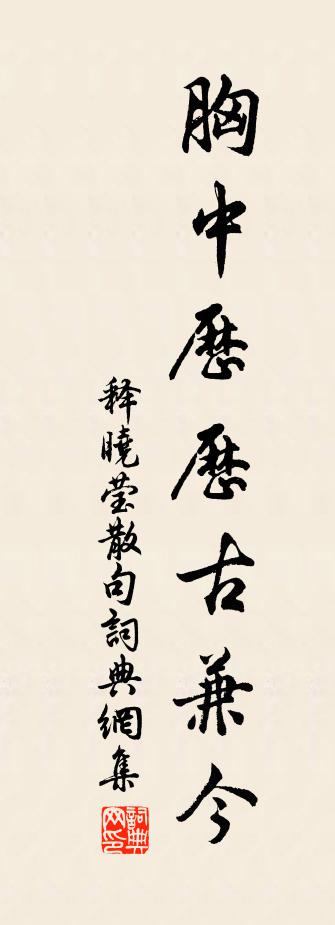 胸中歷歷古兼今
释曉莹散句詞典網集
詞典
网印